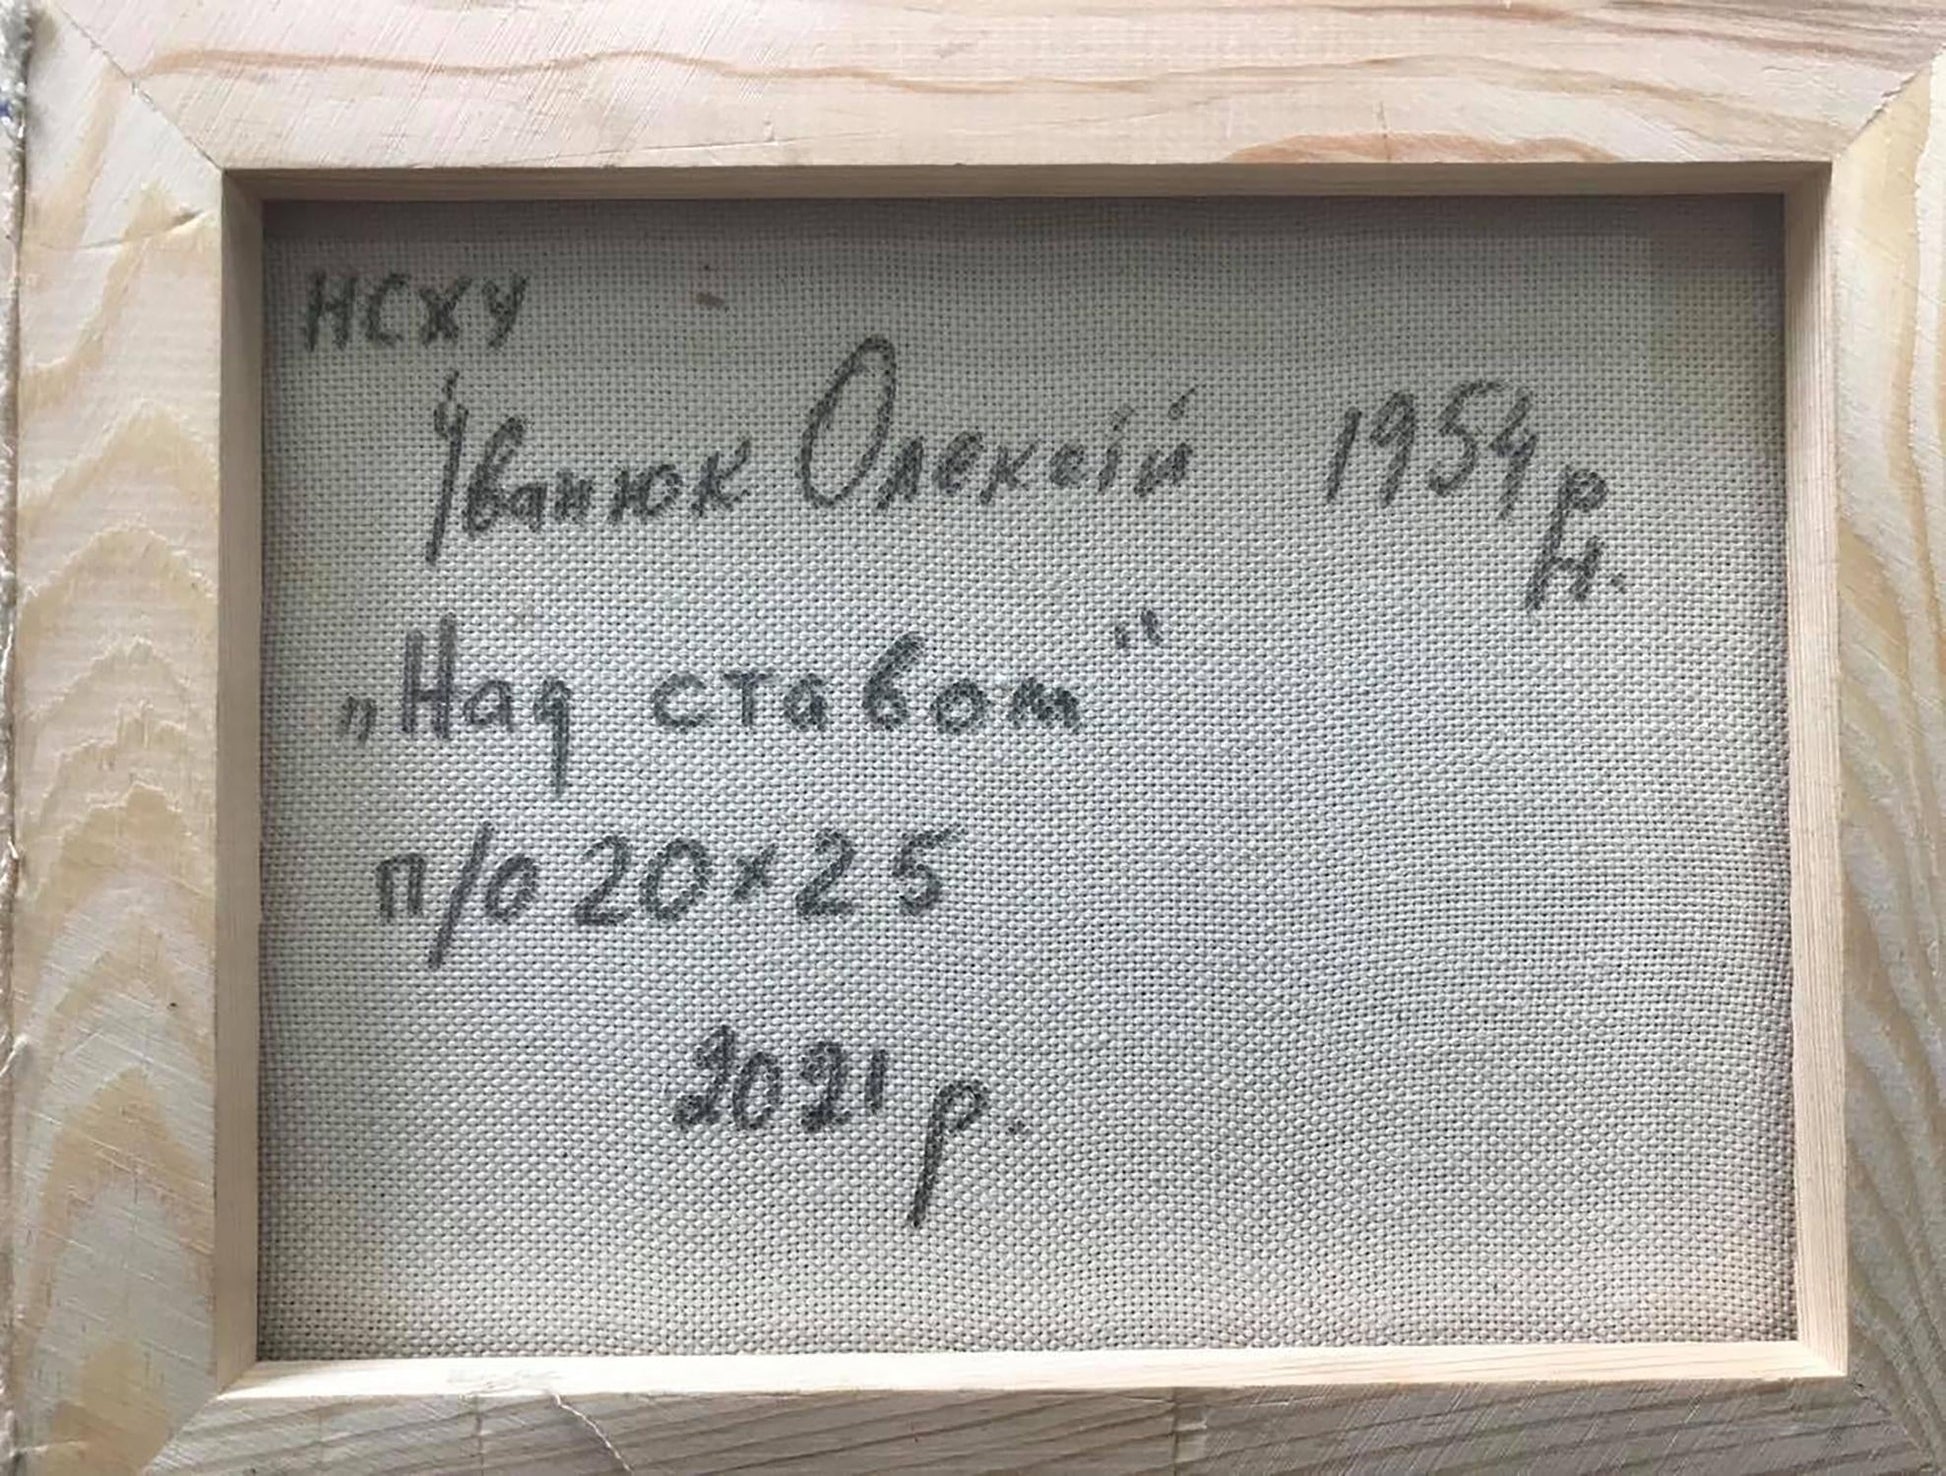 НСХУ
Іванюк Олексій 1954 р
н.
„Над ставом"
п/о 20×25
2021 р.